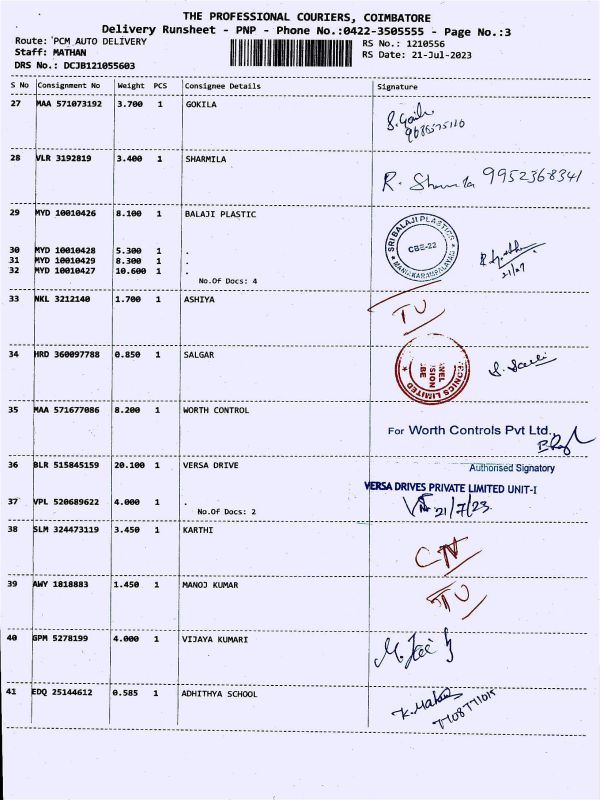 THE PROFESSIONAL COURIERS, COIMBATORE
Delivery Runsheet - PNP - Phone No.:0422-3505555 - Page No.:3
Route: PCM AUTO DELIVERY
Staff: MATHAN
DRS No.: DCJB121055603
RS No.: 1210556
RS Date: 21-Jul-2023
S No Consignment No Weight PCS Consignee Details Signature
27 MAA 571073192 3.700 1 GOKILA
28 VLR 3192819 3.400 1 SHARMILA
R. 9952368341
29 MYD 10010426 8.100 1 BALAJI PLASTIC
SRI BALAJI PLASTICS
CBE-22
MANIAKARAMPALAYAM
30 MYD 10010428 5.300 1 .
31 MYD 10010429 8.300 1 .
32 MYD 10010427 10.600 1 .
No.Of Docs: 4
21/07
33 NKL 3212140 1.700 1 ASHIYA
TU
34 HRD 360097788 0.850 1 SALGAR
LIMITED
35 MAA 571677086 8.200 1 WORTH CONTROL
For Worth Controls Pvt Ltd.,
Authorised Signatory
36 BLR 515845159 20.100 1 VERSA DRIVE
VERSA DRIVES PRIVATE LIMITED UNIT-I
21/7/23
37 VPL 520689622 4.000 1 .
No.Of Docs: 2
38 SLM 324473119 3.450 1 KARTHI
CN
39 AWY 1818883 1.450 1 MANOJ KUMAR
TU
40 GPM 5278199 4.000 1 VIJAYA KUMARI
41 EDQ 25144612 0.585 1 ADHITHYA SCHOOL